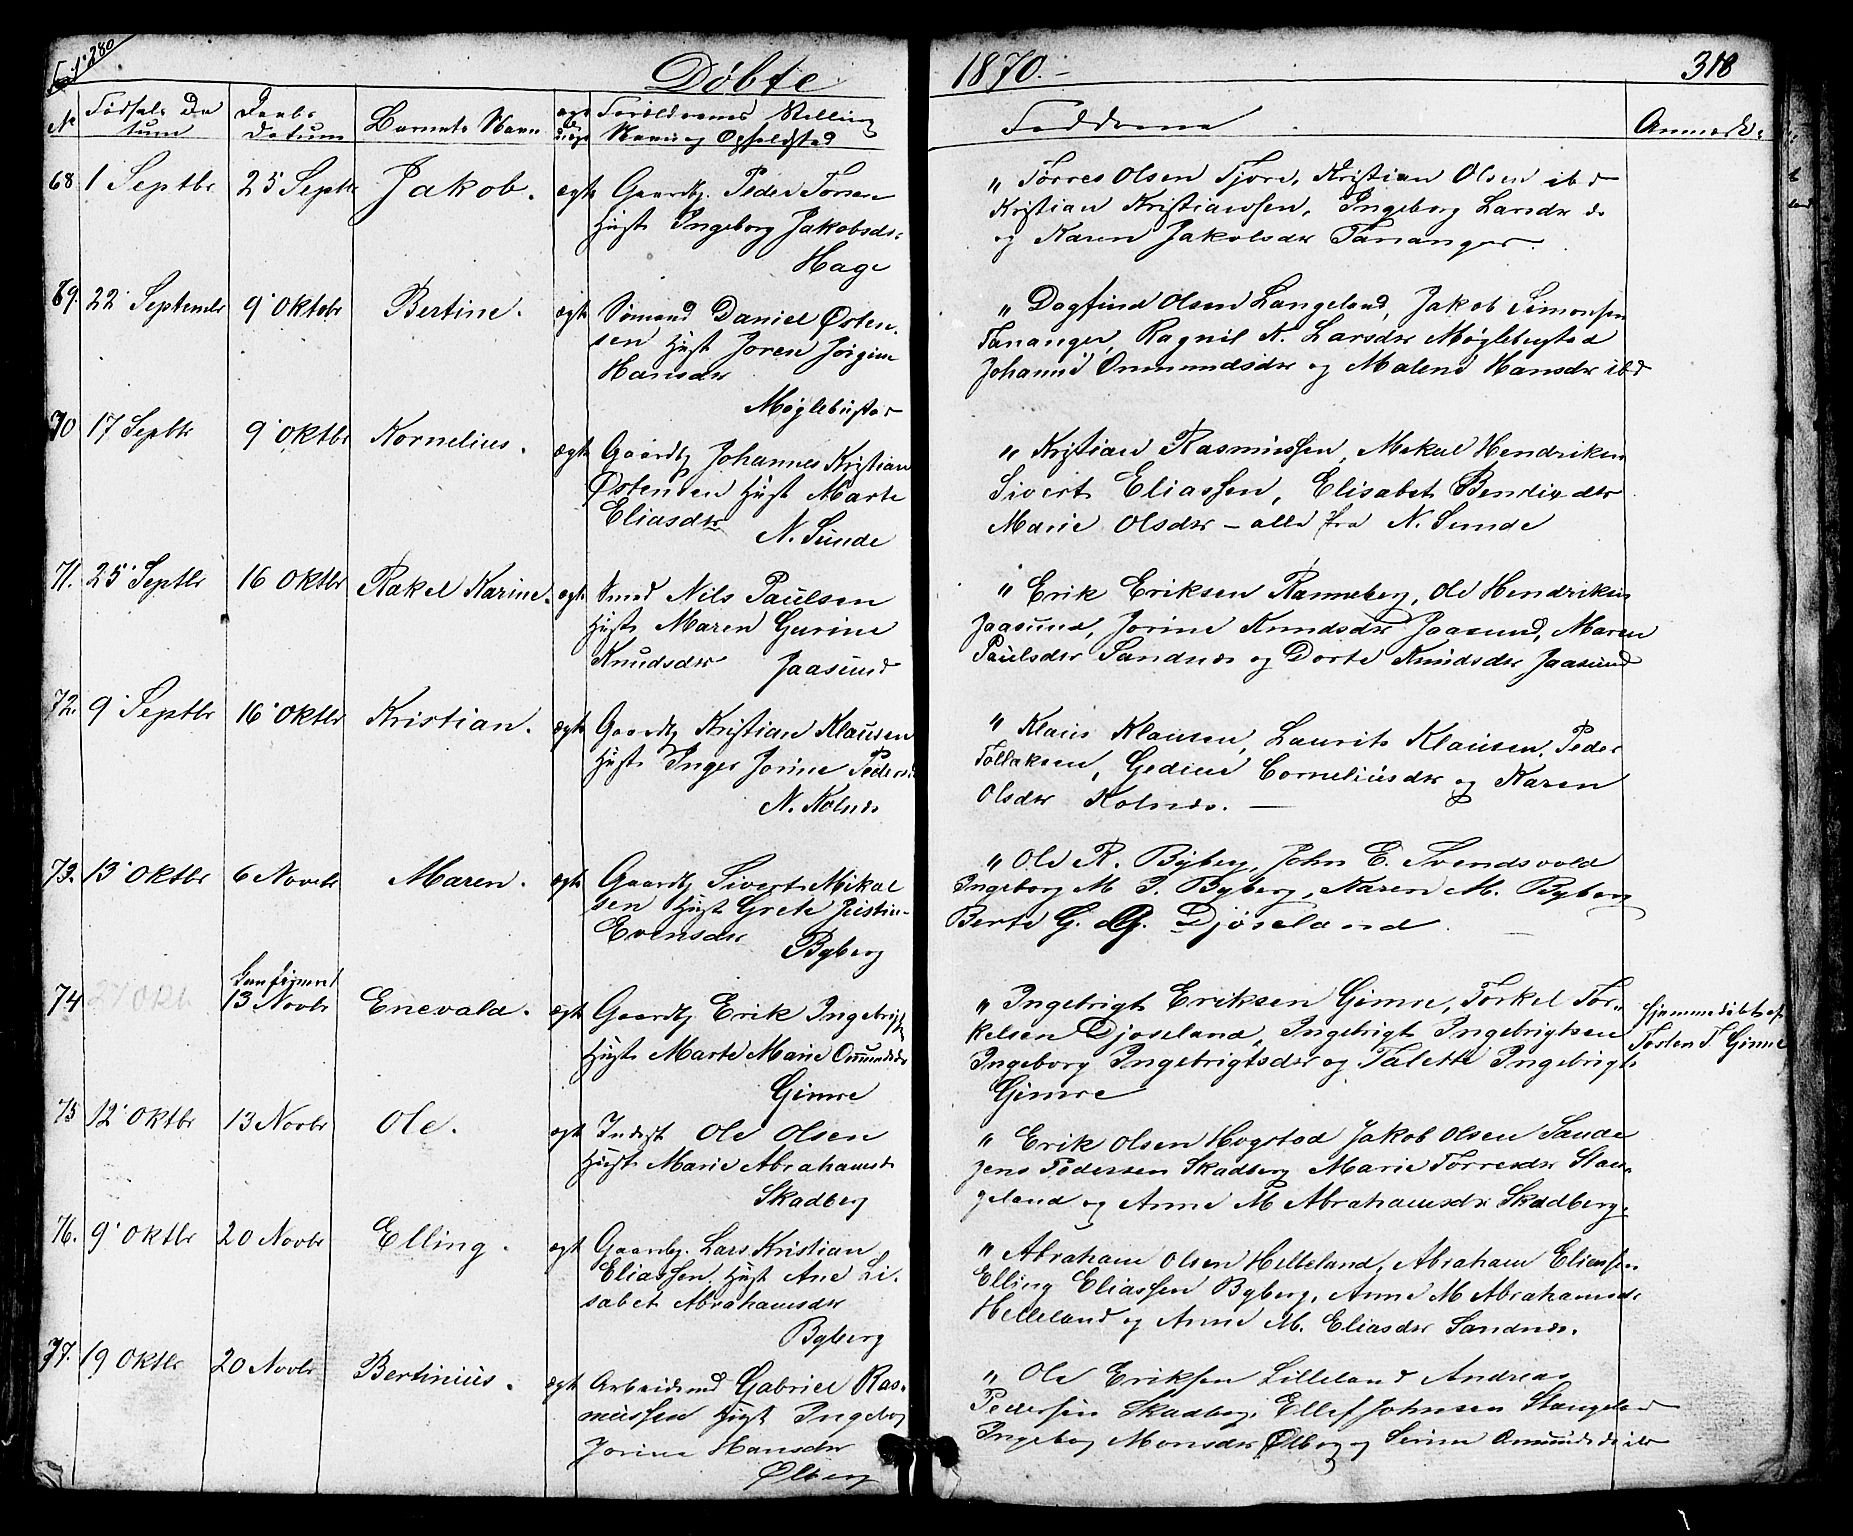 280
Døbte
1870.-
318
№
Fødsels Da
tum
Daabs
Datum
Barnets Navn
Forældrenes Stilling
Navn og Opholdsted
Faddere
Anmærk.
68 1 Septbr 25 Septb Jakob. ægte Gaardbr. Peder
Hust. Ingeborg Jakobsdr.
Hage
" Tørres Olsen Tjora, Kristian Olsen ibd
Kristian Kristiansen, Ingeborg Larsdr do
og Karen Jakobsdr Tananger
69. 22 Septembr 9' Oktobr Bertine. ægte Sømand Daniel Østen-
sen Hust Joren Jørgine
Hansdr
Møglebustad
" Dagfind Olsen Langeland, Jakob Simonsen
Tananger, Ragnil K. Larsdr Møglebustad
Johanne Ommundsdr og Malene Hansdr ibd
70 17 Septbr 9' Oktbr Kornelius. ægte Gaardbr Johannes Kristian
Østensen Hust Marte
Eliasdr
N. Sunde
" Kristian Rasmussen, Mekal Hendriksen
Sivert Eliassen, Elisabet Bendixdtr
Marie Olsdr - alle fra N. Sunde
71. 25' Septbr 16 Oktbr Rakel Karine. ægte Smed Nils Paulsen
Hust. Maren Gurine
Knudsdr Jaasund
" Erik Eriksen Ranneberg, Ole Hendriksen
Jaasund, Jorine Knudsdr Jaasund, Maren
Paulsdr Sandnes og Dorte Knudsdr Jaasund
72. 9' Septbr 16' Oktbr Kristian. ægte Gaardbr Kristian Klausen
Hust. Inger Jorine Peders
N. Kolnes
" Klaus Klausen, Laurits Klausen, Peder
Tollaksen, Gedine Corneliusdr og Karen
Olsdr Kolnes. —
73. 13' Oktbr 6 Novbr Maren. ægte Gaardbr Sivert Mikal
sen Hust Grete Justine
Evensdr
Byberg
" Ole R. Byberg, John E. Svendsvold
Ingeborg M. P. Byberg, Karen M. Byberg
Berte G. G. Djøseland.
74 27 Okt. 13 Novbr Enevald. ægte Gaardbr Erik Ingebrigts
Hust. Marte Marie Omundsdr
Gimre
" Ingebrigt Eriksen Gimre, Torkel Tor-
kelsen Djøseland, Ingebrigt Ingebrigtsen
Ingeborg Ingebrigtsdr og Talette Ingebrigts
Gimre
Hjemmedøbt af
Torsten T. Gimre
75 12' Oktbr 13 Novbr Ole. ægte Inderst Ole Olsen
Hust. Marie Abrahamsd.
Skadberg
" Erik Olsen Hogstad Jakob Olsen Sande
Jens Pedersen Skadberg Marie Torresdr Stan-
geland og Anne M Abrahamsdr Skadberg.
76. 9' Oktbr 20 Novbr Elling. ægte Gaardbr. Lars Kristian
Eliassen. Hust Ane Li-
sabet Abrahamsdr
Byberg
" Abraham Olsen Helleland, Abraham Eliassen
Elling Eliassen Byberg, Anne M Abrahamsdr
Helleland og Anne M. Eliasdr Sandnes.
77. 19 Oktbr 20 Novbr Bertinius. ægte Arbeidsmd Gabriel Ras-
mussen Hust Ingeborg
Jorine Hansdr
Ølberg
" Ole Eriksen Lilleland Andreas
Pedersen Skadberg, Ellef Johnsen Stangeland
Ingeborg Monsdr Ølberg og Serine Omundsd ibd